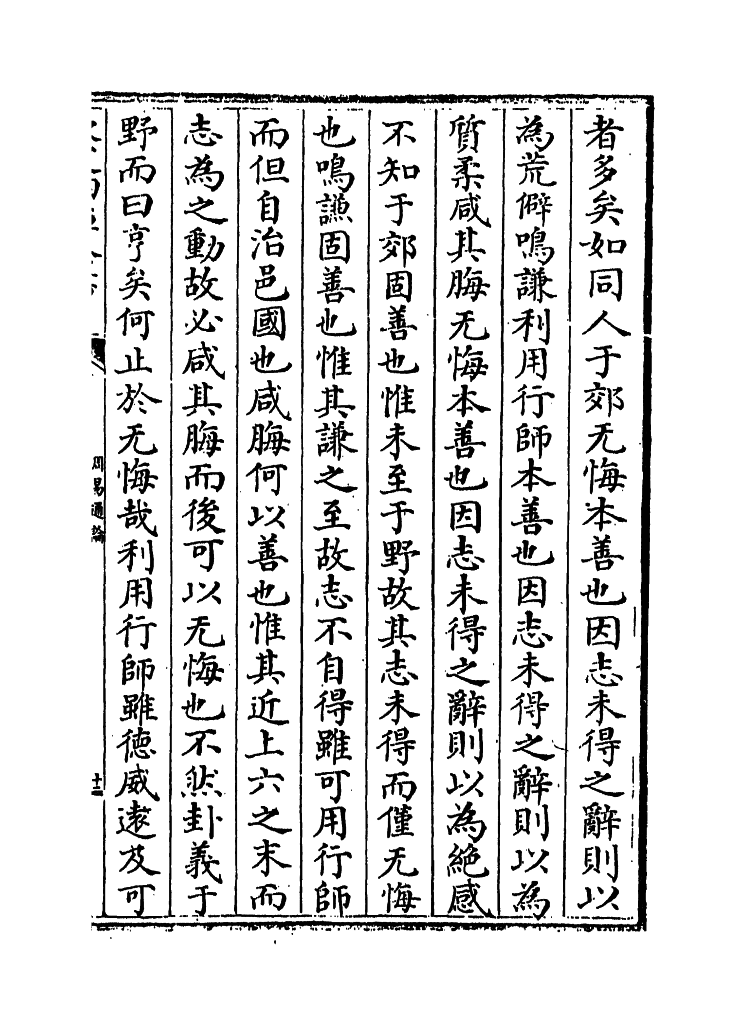 者多矣如同人于郊无悔本善也因志未得之辭則以
為荒僻鳴謙利用行師本善也因志未得之辭則以為
質柔咸其脢无悔本善也因志未得之辭則以為絶感
不知于郊固善也惟未至于野故其志未得而僅无悔
也鳴謙固善也惟其謙之至故志不自得雖可用行師
而但自治邑國也咸脢何以善也惟其近上六之末而
志為之動故必咸其脢而後可以无悔也不然卦義于
野而曰亨矣何止於无悔哉利用行師雖德威遠及可
周易通論
十三